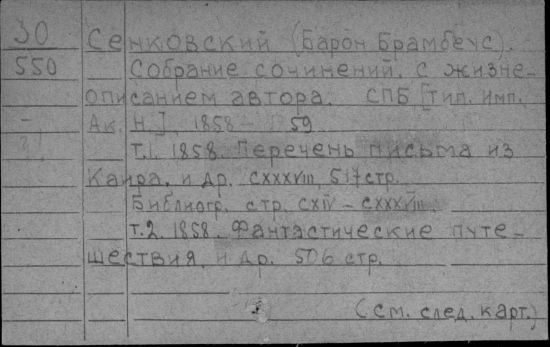 30
550
Сенковский (Барон Брамбеус).
Собрание сочинений. С жизне-
описанием автора. СПБ [тип. имп.
Ак. Н.] 1858 - 59
т.1. 1858. Перечень письма из
Каира, и др. CXXXVIII, 517 стр.
Библиогр. стр. CXIV - CXXXVIII.
т.2. 1858. Фантастические путе-
шествия, и др. 506 стр.
(см. след. карт.)